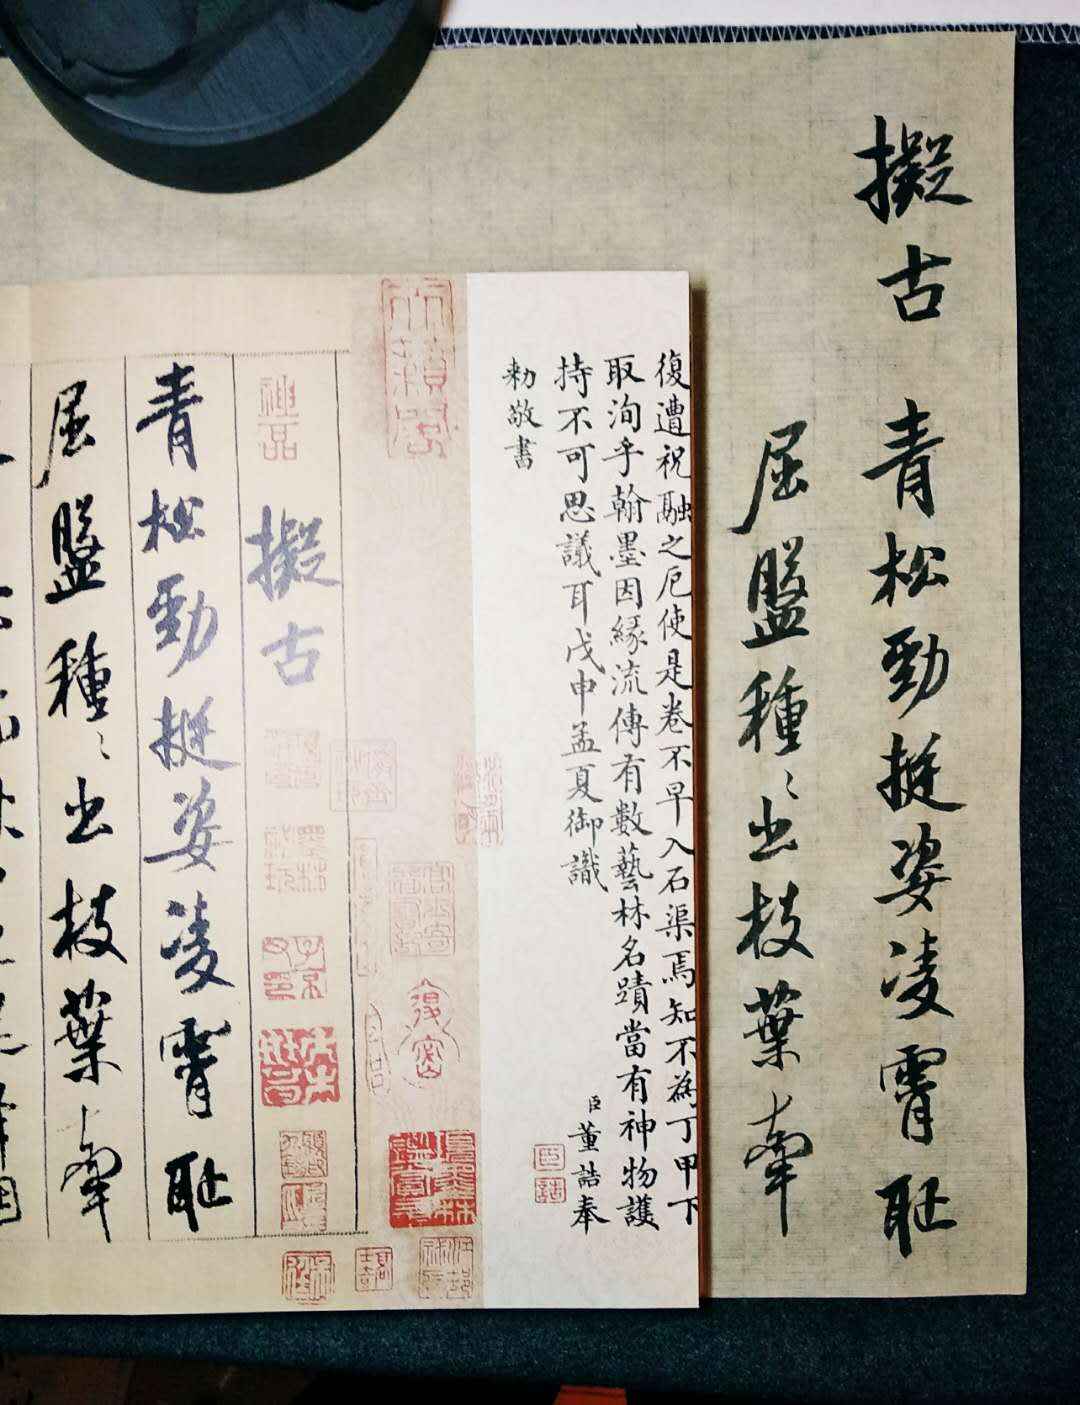 擬古 青松勁挺姿凌霄耻
屈盤種〻出枝葉牽
復遭祝融之厄使是卷不早入石渠焉知不為丁甲下
取洵乎翰墨因緣流傳有數藝林名蹟當有神物護
持不可思議耳戊申孟夏御識
臣董誥奉
勅敬書
擬古
青松勁挺姿凌霄耻
屈盤種〻出枝葉牽